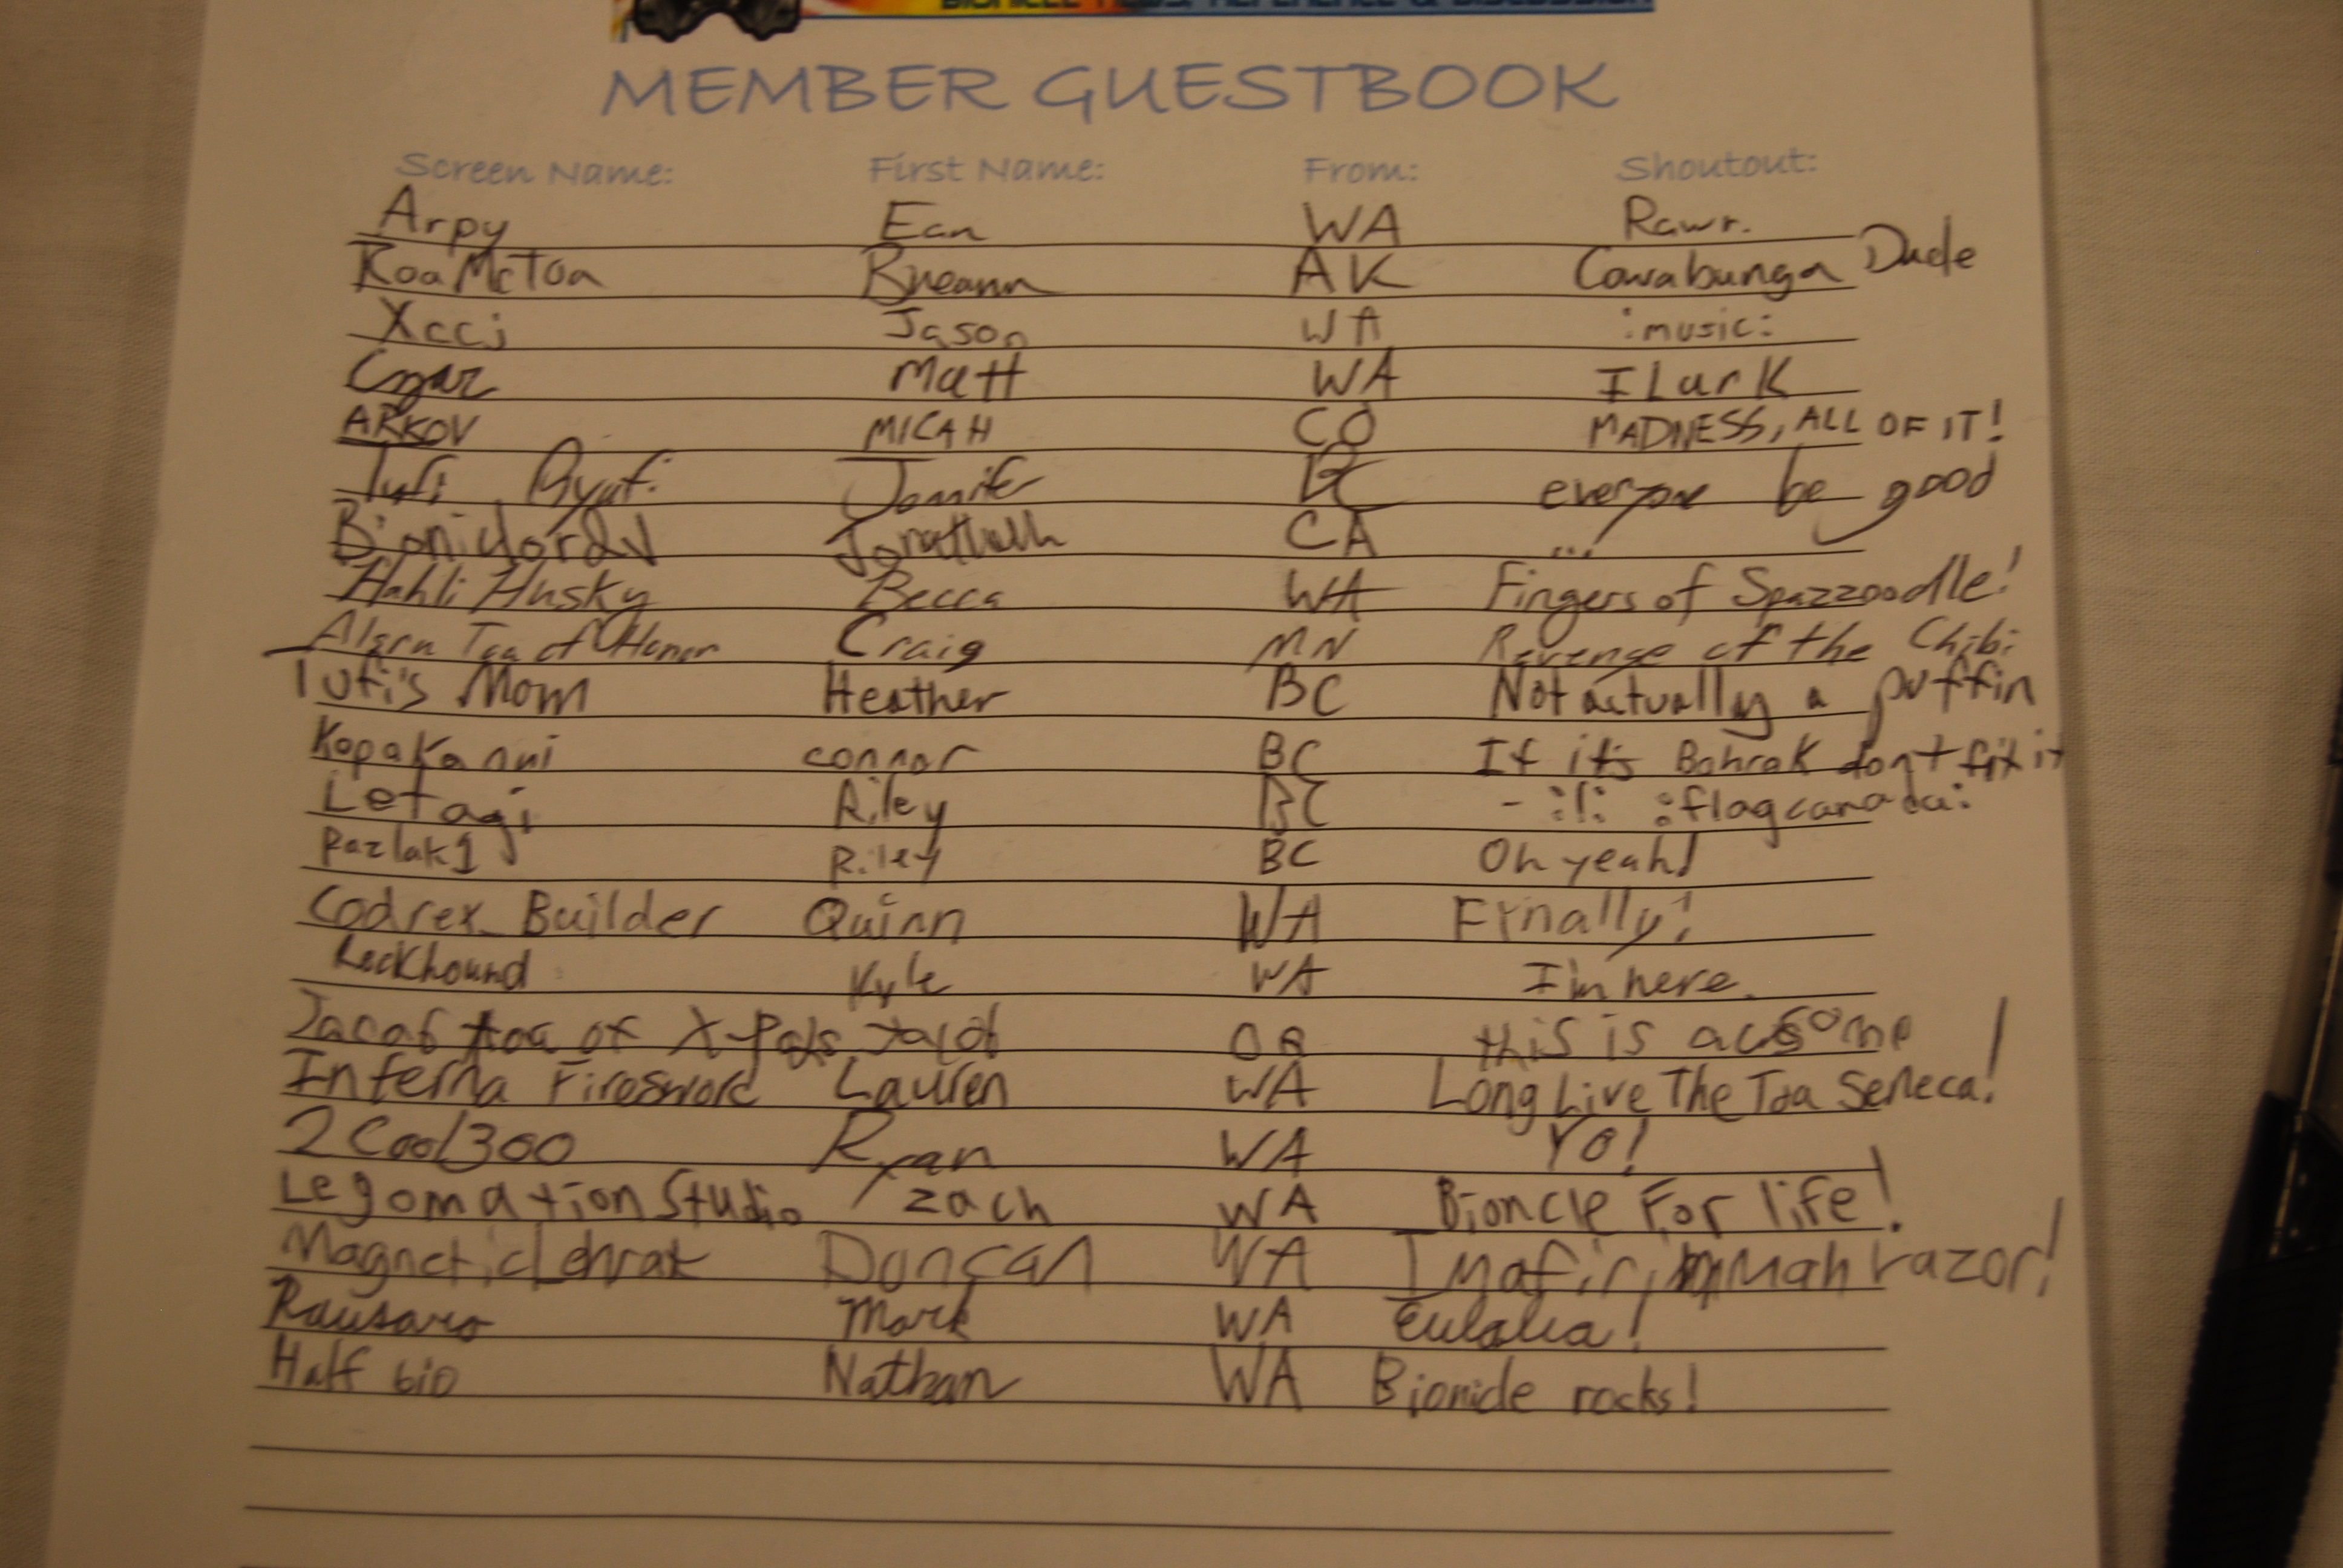 BIONICLE NEWS, REFERENCE & DISCUSSION
MEMBER GUESTBOOK
Screen Name: First Name: From: Shoutout:
Arpy Ean WA Rawr.
KoaMcToa Breann AK Cowabunga Dude
Xccj Jason WA :music:
Matt WA I Lurk
ARKOV MICAH CO MADNESS, ALL OF IT!
Tufi Piyufi Jennifer BC everyone be good
Jonathan CA ...
Hahli Husky Becca WA Fingers of Spazzoodle!
Toa of Honor Craig MN Revenge of the Chibi
Tufi's Mom Heather BC Not actually a puffin
KopaKa nui connor BC If its Bohrok dont fix it
Letagi Riley BC - :l: :flagcanada:
Pazlak1 Riley BC Oh yeah!
Codrex_Builder Quinn WA Finally!
Rockhound Kyle WA I'm here.
toa of X-Pols OR this is awesome!
Inferna Firesword Lauren WA Long Live The Toa Seneca!
2Cool300 Ryan WA YO!
LegomationStudio zach WA Bioncle For life!
MagneticLehrak Duncan WA Imafirin mah razor!
Mark WA Eulalia!
Half bio Nathan WA Bionicle rocks!